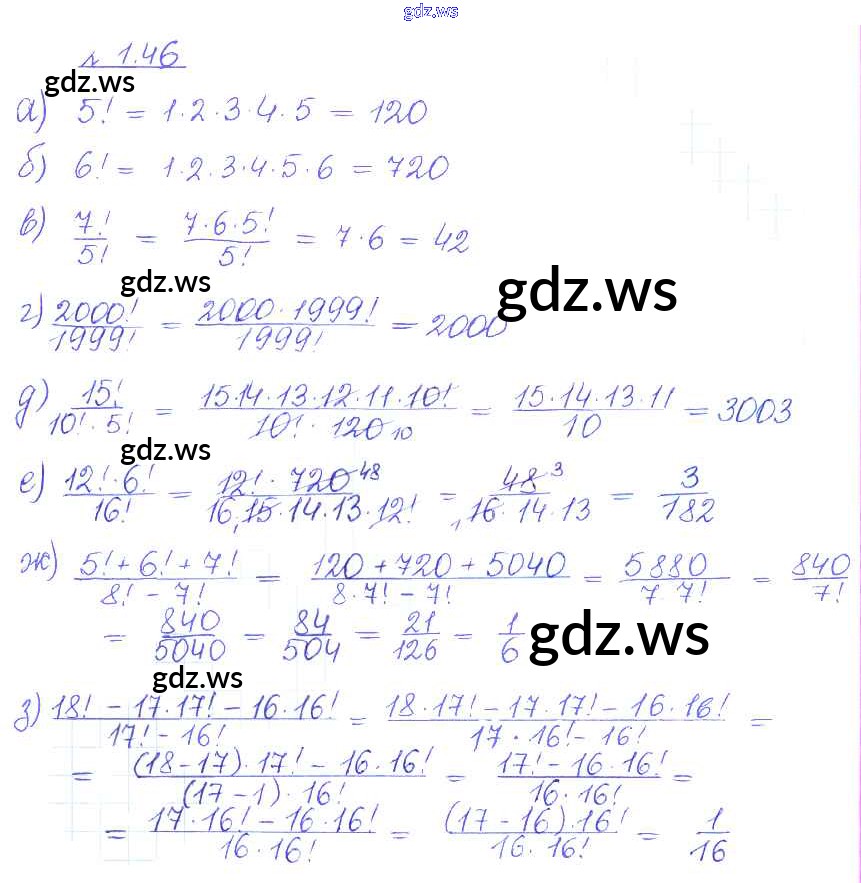 gdz.ws
№ 1.46
gdz.ws
а) 5! = 1·2·3·4·5 = 120
б) 6! = 1·2·3·4·5·6 = 720
в) 7!/5! = 7·6·5!/5! = 7·6 = 42
gdz.ws
gdz.ws
г) 2000!/1999! = 2000·1999!/1999! = 2000
д) 15!/10!·5! = 15·14·13·12·11·10!/10!·120 10 = 15·14·13·11/10 = 3003
gdz.ws
е) 12!·6!/16! = 12!·720 48/16·15·14·13·12! = 48 3/16·14·13 = 3/182
ж) 5!+6!+7!/8!-7! = 120+720+5040/8·7!-7! = 5880/7·7! = 840/7!
= 840/5040 = 84/504 = 21/126 = 1/6
gdz.ws
gdz.ws
з) 18!-17·17!-16·16!/17!-16! = 18·17!-17·17!-16·16!/17·16!-16! =
= (18-17)·17!-16·16!/(17-1)·16! = 17!-16·16!/16·16! =
= 17·16!-16·16!/16·16! = (17-16)·16!/16·16! = 1/16